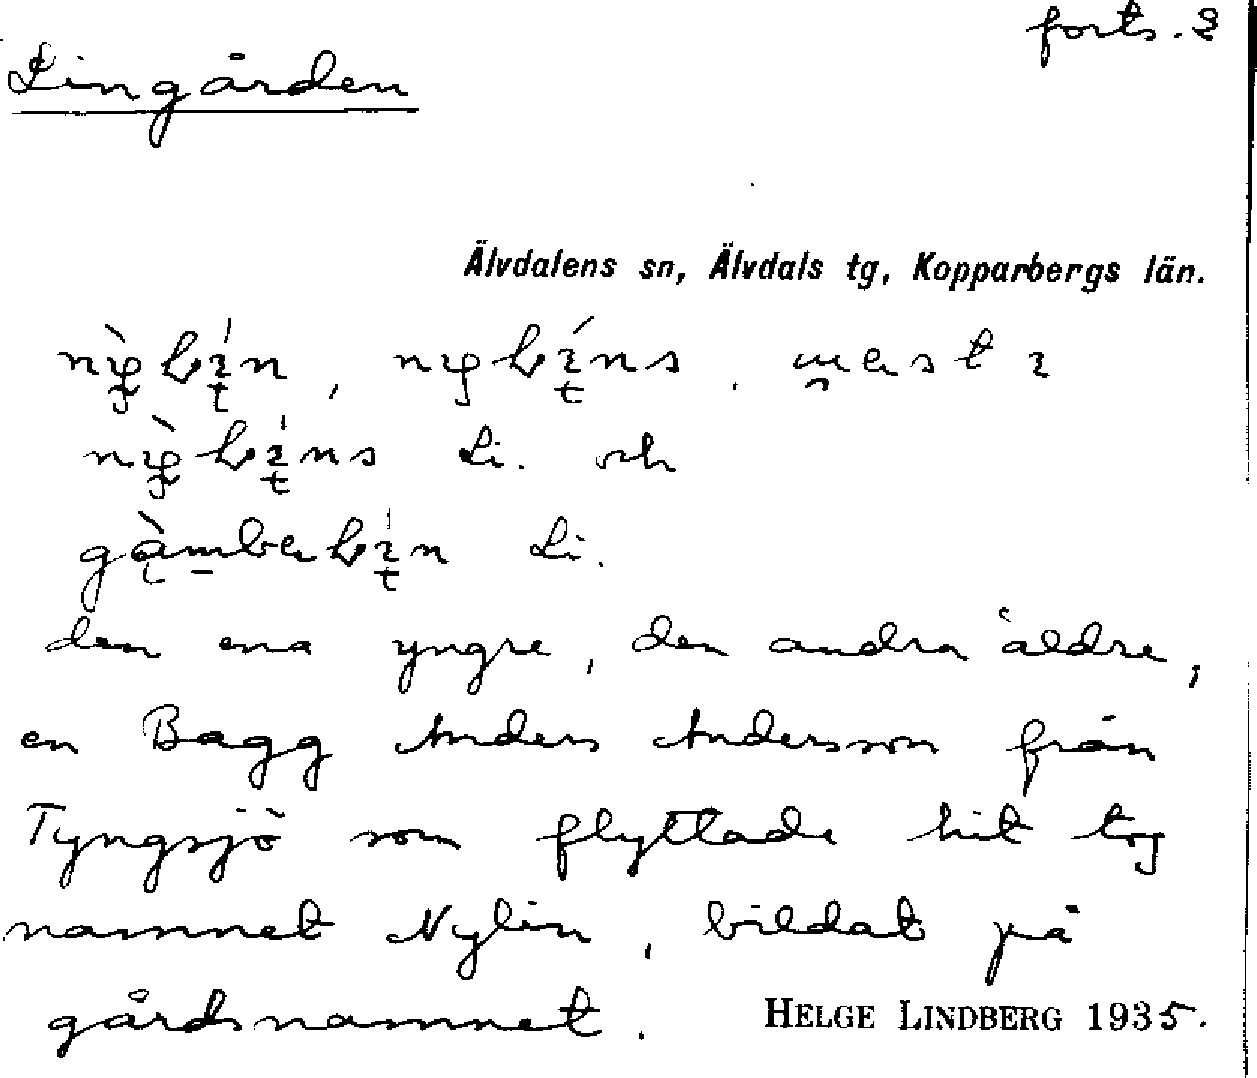 forts. 2
Lingården
Älvdalens sn, Älvdals tg, Kopparbergs län.
Li. och
Li.
den ena yngre, den andra äldre,
en Bagg Anders Andersson från
Tyngsjö som flyttade hit tog
namnet Nylin, bildat på
gårdsnamnet. HELGE LINDBERG 1935.